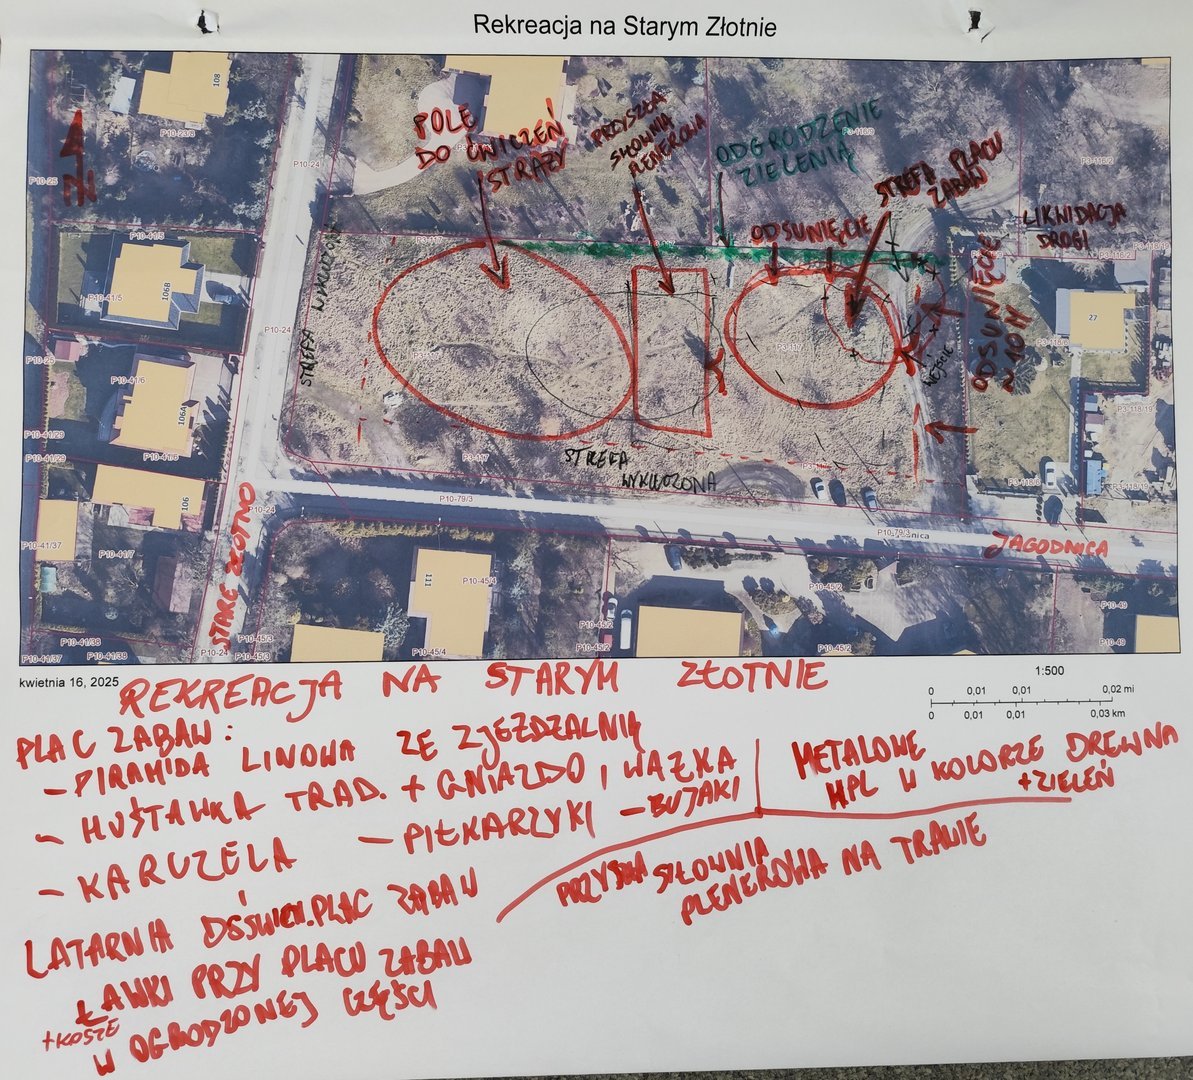 Rekreacja na Starym Złotnie
108
P10-23/8
P10-24
P10-25
N
POLE
DO ĆWICZEŃ
STRAŻY
PRZYSZŁA
SIŁOWNIA
PLENEROWA
ODGRODZENIE
ZIELENIĄ
P3-116/9
P3-116/2
STREFA PLACU
ZABAW
ODSUNIĘCIE
LIKWIDACJA
DROGI
P10-41/5
106B
P10-41/5
P10-24
STREFA WYKLUCZONA
P3-117
P3-118/2
P3-118/19
ODSUNIĘCIE
N 10M
27
P10-25
P10-41/6
106A
P10-41/6
P10-41/29
P10-41/29
WEJŚCIE
P3-118/19
P3-117
STREFA
WYKLUCZONA
P3-118/6
P3-118/19
106
P10-79/3
P10-24
P10-79/3
JAGODNICA
P10-41/37
P10-41/7
STARE ZŁOTNO
111
P10-45/4
P10-45/2
P10-49
P10-41/38
P10-41/37
P10-41/38
P10-24
P10-45/3
P10-45/3
P10-45/4
P10-45/2
P10-45/2
P10-45/2
P10-49
kwietnia 16, 2025
1:500
0 0,01 0,01 0,02 mi
0 0,01 0,01 0,03 km
REKREACJA NA STARYM ZŁOTNIE
PLAC ZABAW:
- PIRAMIDA LINOWA ZE ZJEŻDŻALNIĄ
- HUŚTAWKA TRAD. + GNIAZDO, WAŻKA
- KARUZELA - PIŁKARZYKI - BUJAKI
METALOWE
HPL W KOLORZE DREWNA
+ ZIELEŃ
PRZYSZŁA SIŁOWNIA
PLENEROWA NA TRAWIE
LATARNIA DOŚWIETL. PLAC ZABAW
ŁAWKI PRZY PLACU ZABAW
+ KOSZE
W OGRODZONEJ CZĘŚCI